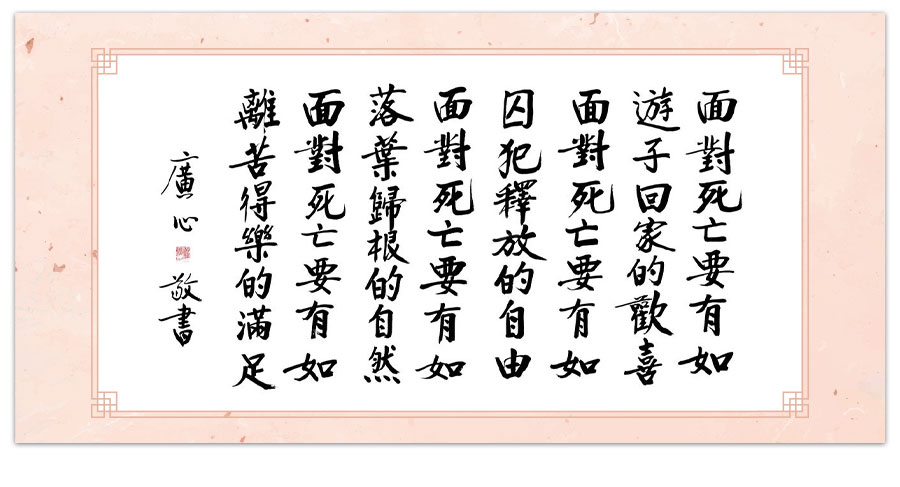 面對死亡要有如
遊子回家的歡喜
面對死亡要有如
囚犯釋放的自由
面對死亡要有如
落葉歸根的自然
面對死亡要有如
離苦得樂的滿足
廣心 敬書